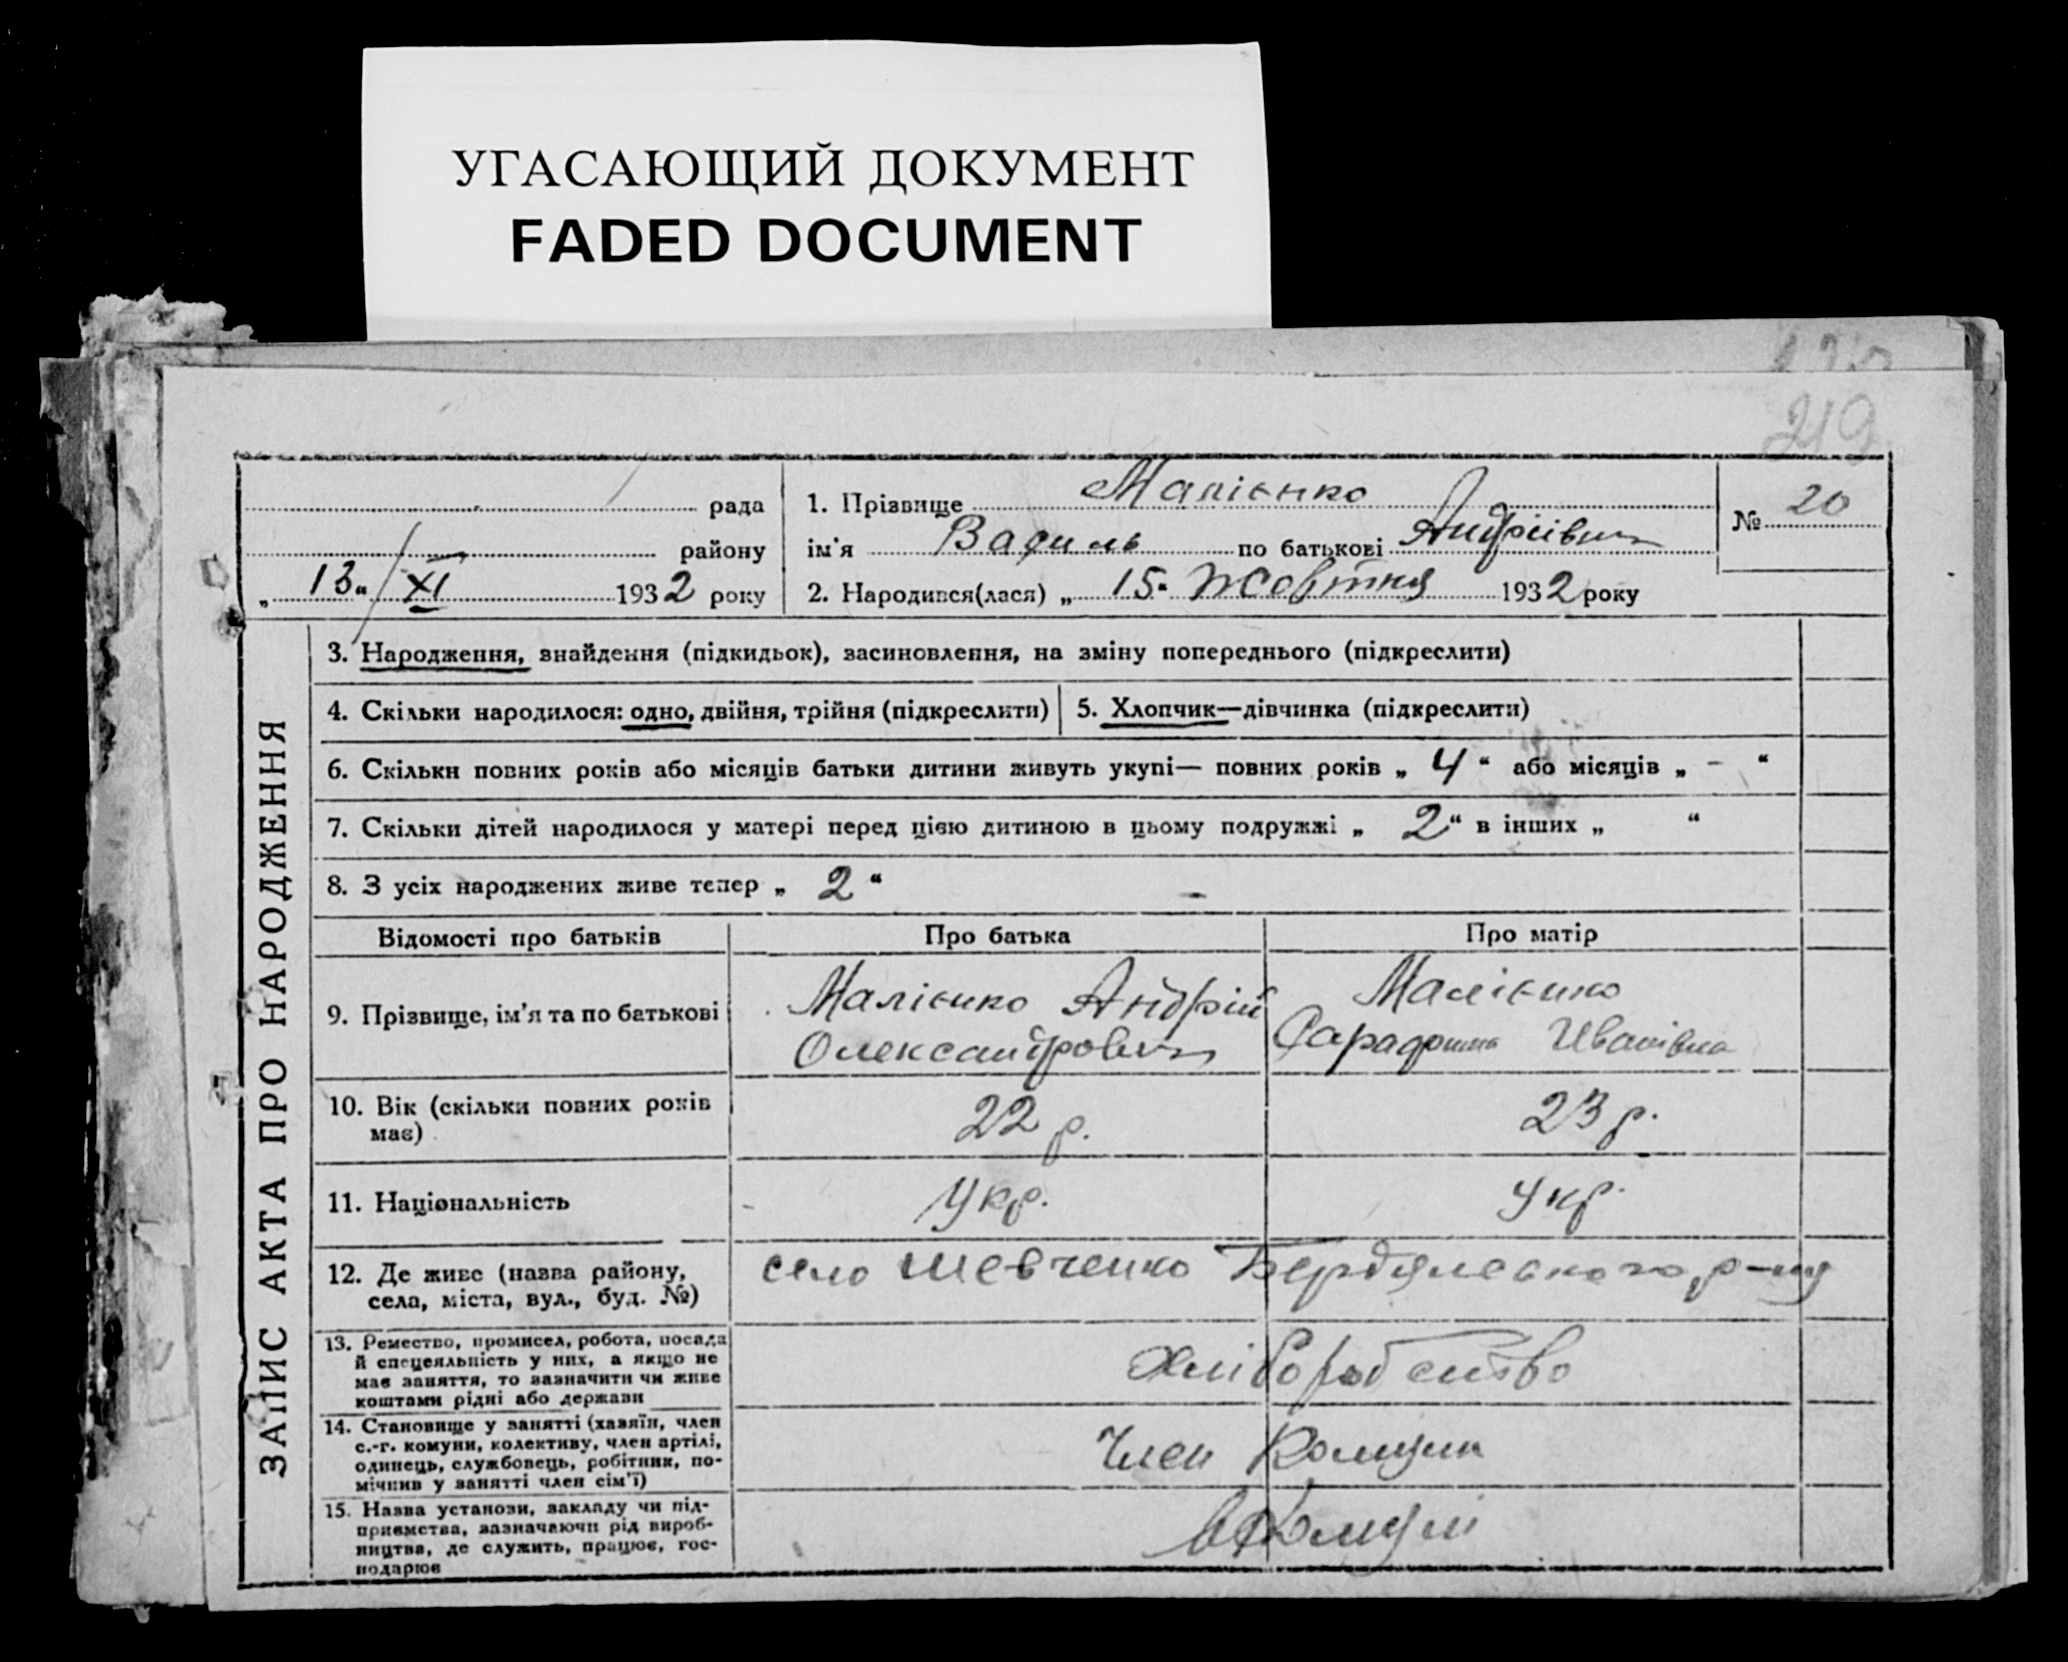 УГАСАЮЩИЙ ДОКУМЕНТ
FADED DOCUMENT
219
рада
району
„ 13 “ XI 1932 року
1. Прізвище Малієнко
ім'я Василь по батькові Андріївич
2. Народився(лася) „ 15 “ Жовтня 1932 року
№ 20
ЗАПИС АКТА ПРО НАРОДЖЕННЯ
3. Народження, знайдення (підкидьок), засиновлення, на зміну попереднього (підкреслити)
4. Скільки народилося: одно, двійня, трійня (підкреслити) 5. Хлопчик—дівчинка (підкреслити)
6. Скільки повних років або місяців батьки дитини живуть укупі— повних років „ 4 “ або місяців „ - “
7. Скільки дітей народилося у матері перед цією дитиною в цьому подружжі „ 2 “ в інших „ “
8. З усіх народжених живе тепер „ 2 “ -
Відомості про батьків Про батька Про матір
9. Прізвище, ім'я та по батькові
Малієнко Андрій
Олександрович
Малієнко
Ивапівна
10. Вік (скільки повних років
має)
22 р.
23 р.
11. Національність Укр. Укр.
12. Де живе (назва району,
села, міста, вул., буд. №)
село Шевченко Бердянського р-ну
13. Ремество, промисел, робота, посада
й спецеяльність у них, а якщо не
має заняття, то зазначити чи живе
коштами рідні або держави
Хліборобство
14. Становище у занятті (хазяїн, член
с.-г. комуни, колективу, член артілі,
одинець, службовець, робітник, по-
мічнив у занятті член сім'ї)
Член Комуни
15. Назва установи, закладу чи під-
приємства, зазначаючи рід вироб-
ництва, де служить, працює, гос-
подарює
в Комуні